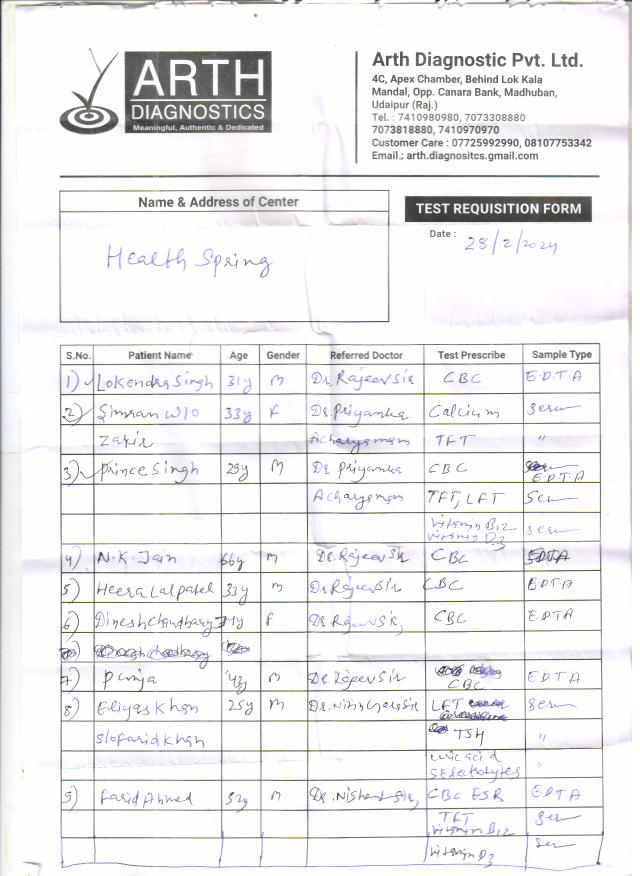 ARTH
DIAGNOSTICS
Meaningful, Authentic & Dedicated
Arth Diagnostic Pvt. Ltd.
4C, Apex Chamber, Behind Lok Kala
Mandal, Opp. Canara Bank, Madhuban,
Udaipur (Raj.)
Tel. : 7410980980, 7073308880
7073818880, 7410970970
Customer Care : 07725992990, 08107753342
Email.: arth.diagnositcs.gmail.com
Name & Address of Center
TEST REQUISITION FORM
Health Spring
Date : 28/2/2024
S.No. Patient Name Age Gender Referred Doctor Test Prescribe Sample Type
1) Lokendra Singh 31y M Dr. Rajeev Sir CBC E.D.T.A
2) Simran W/O 33y F Dr. Priyanka Calcium Serum
Zakir TFT "
3) Prince Singh 29y M Dr Priyanka CBC EDTA
TFT, LFT Serum
Vitamin B12 Serum
Vitamin D3
4) N.K. Jain 66y M Dr. Rajeev Sir CBC EDTA
5) Heera Lal patel 33y M Dr Rajeev Sir CBC EDTA
6) Dinesh Chaudhary F Dr Rajeev Sir, CBC EDTA
7) M Dr Rajeev Sir CBC EDTA
8) Eliyas Khan 25y M LFT Serum
S/o Farid Khan TSH "
Uric acid "
S Electrolytes
9) Farid Ahmed 52y M Dr. Nishant Sir, CBC ESR EDTA
TFT Serum
Vitamin B12
Vitamin D3 Serum